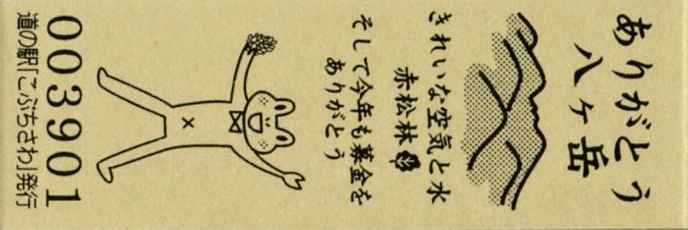 ありがとう
八ヶ岳
きれいな空気と水
赤松林
そして今年も募金を
ありがとう
003901
道の駅「こぶちさわ」発行